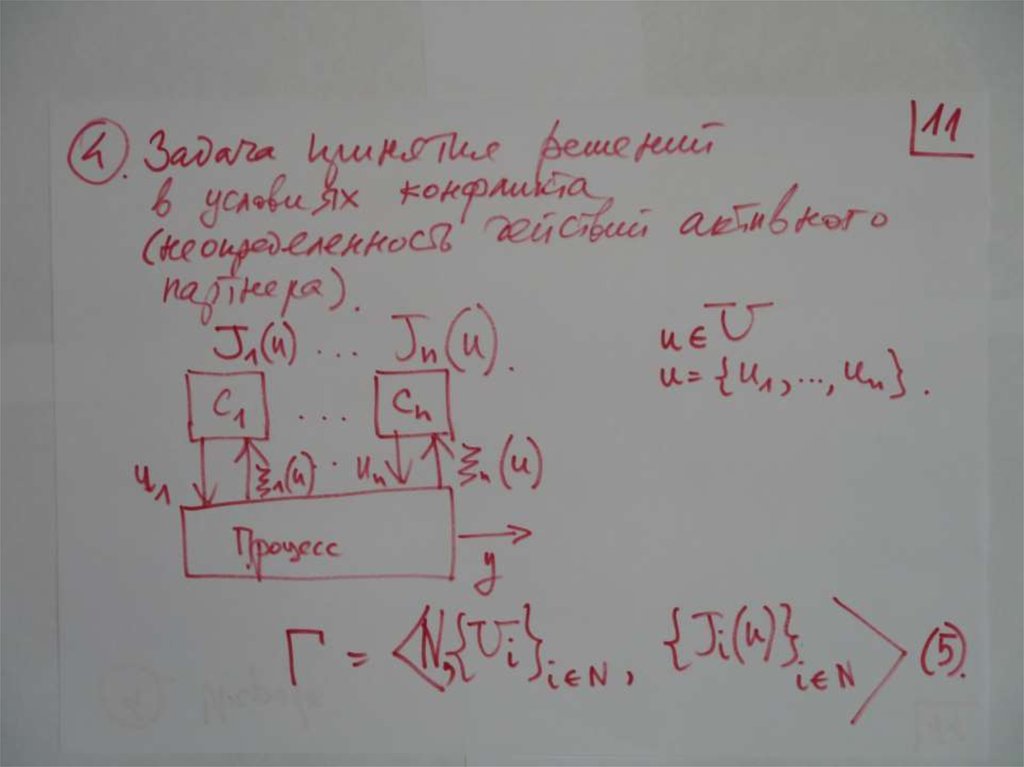 11
4. Задача принятия решений
в условиях конфликта
(неопределенность действий активного
партнера).
J₁(u) ... Jₙ(u).
u ∈ U
u = {u₁, ..., uₙ}.
C₁ ... Cₙ
u₁ ξ₁(u) . uₙ ξₙ(u)
Процесс
y
Γ = <N, {Uᵢ}ᵢ∈N, {Jᵢ(u)}ᵢ∈N> (5).